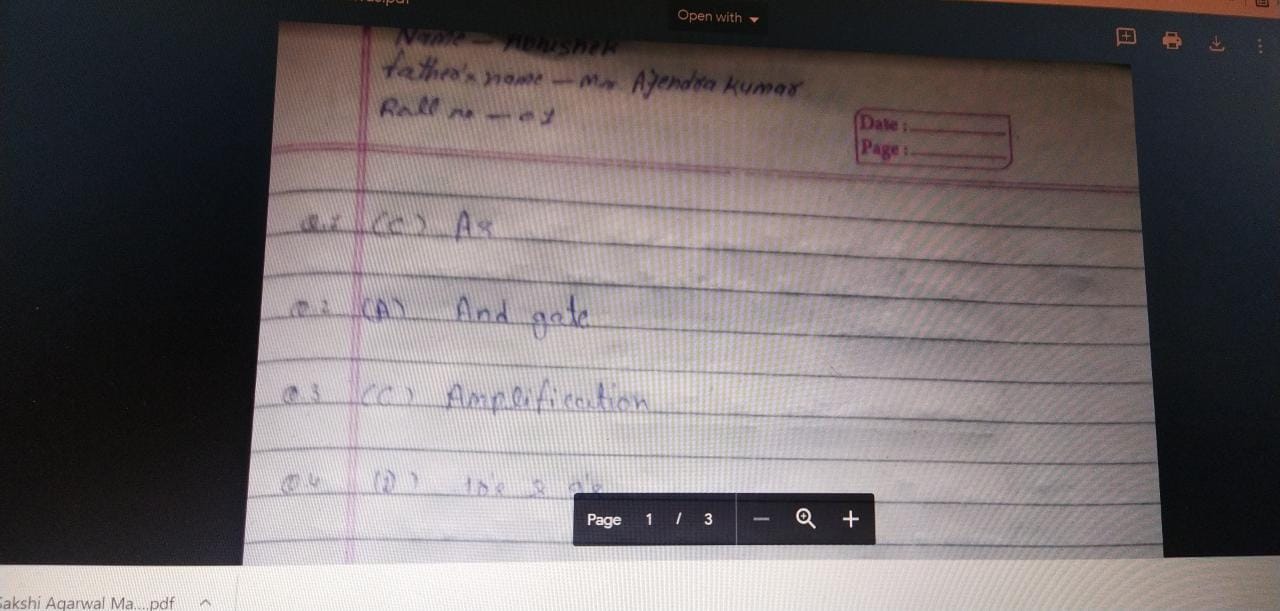 .pdf
Open with
Name - Abhishek
father's name - Mr. Ajendra kumar
Roll no - 01
Date :
Page :
Q.1 (C) As
Q 2 (A) And gate
Q 3 (C) Amplification
Q 4 (D) 10's & 9's
Page 1 / 3
Sakshi Agarwal Ma....pdf